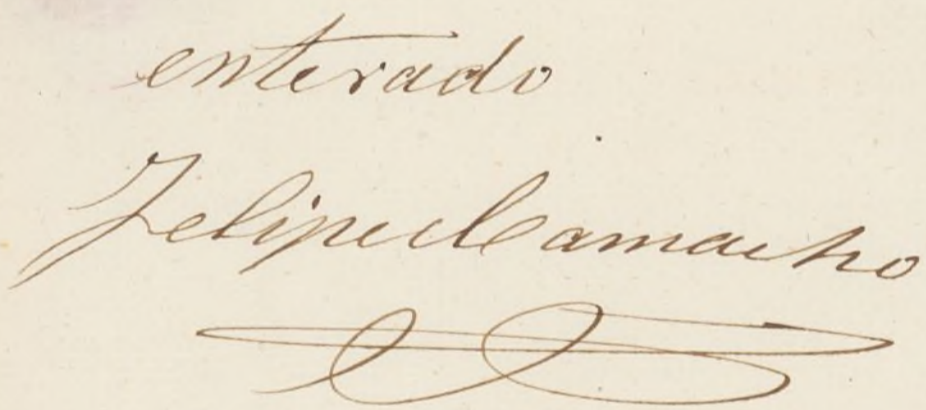 enterado
Felipe Camacho